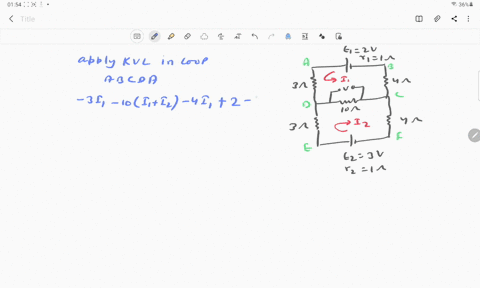 01:54
36%
Title
apply KVL in loop
ABCDA
-3I₁ -10(I₁+I₂) -4I₁ + 2 -
ε₁=2V
r₁=1Ω
A
B
3Ω
I₁
4Ω
V
D
C
10Ω
3Ω
I2
4Ω
E
ε2=3V
r2=1Ω